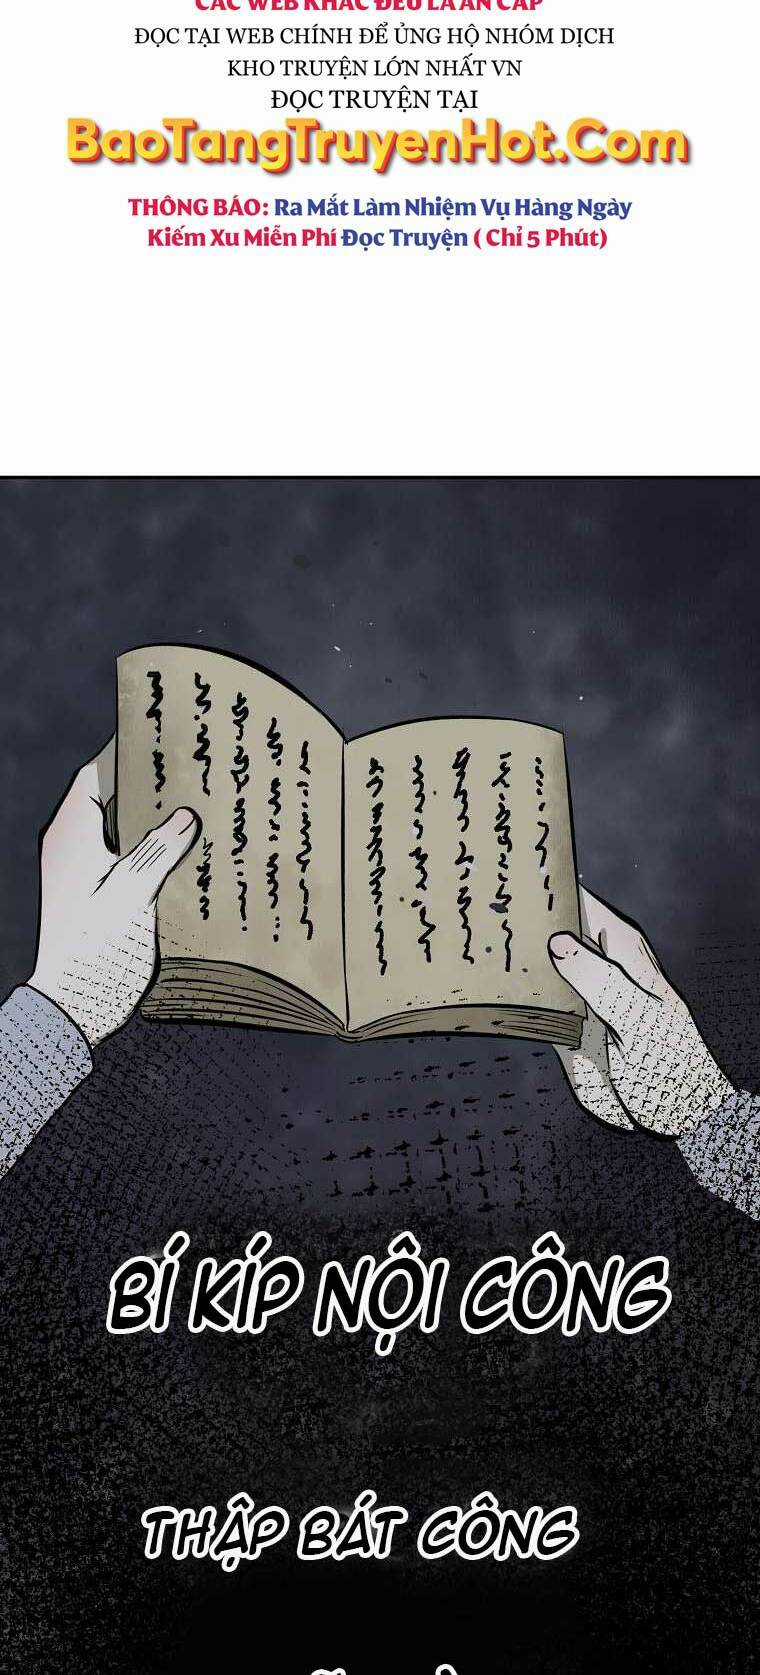 CÁC WEB KHÁC ĐỀU LÀ ĂN CẮP
ĐỌC TẠI WEB CHÍNH ĐỂ ỦNG HỘ NHÓM DỊCH
KHO TRUYỆN LỚN NHẤT VN
ĐỌC TRUYỆN TẠI
BaoTangTruyenHot.Com
THÔNG BÁO: Ra Mắt Làm Nhiệm Vụ Hàng Ngày
Kiếm Xu Miễn Phí Đọc Truyện ( Chỉ 5 Phút)
BÍ KÍP NỘI CÔNG
THẬP BÁT CÔNG